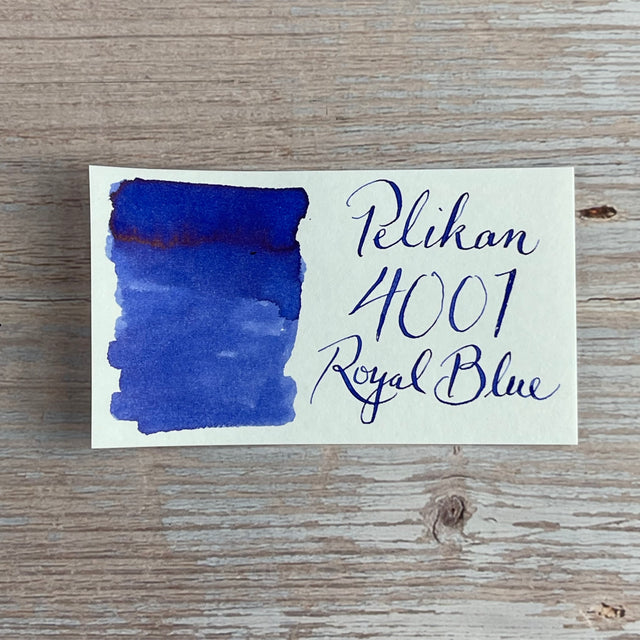 Pelikan
4001
Royal Blue